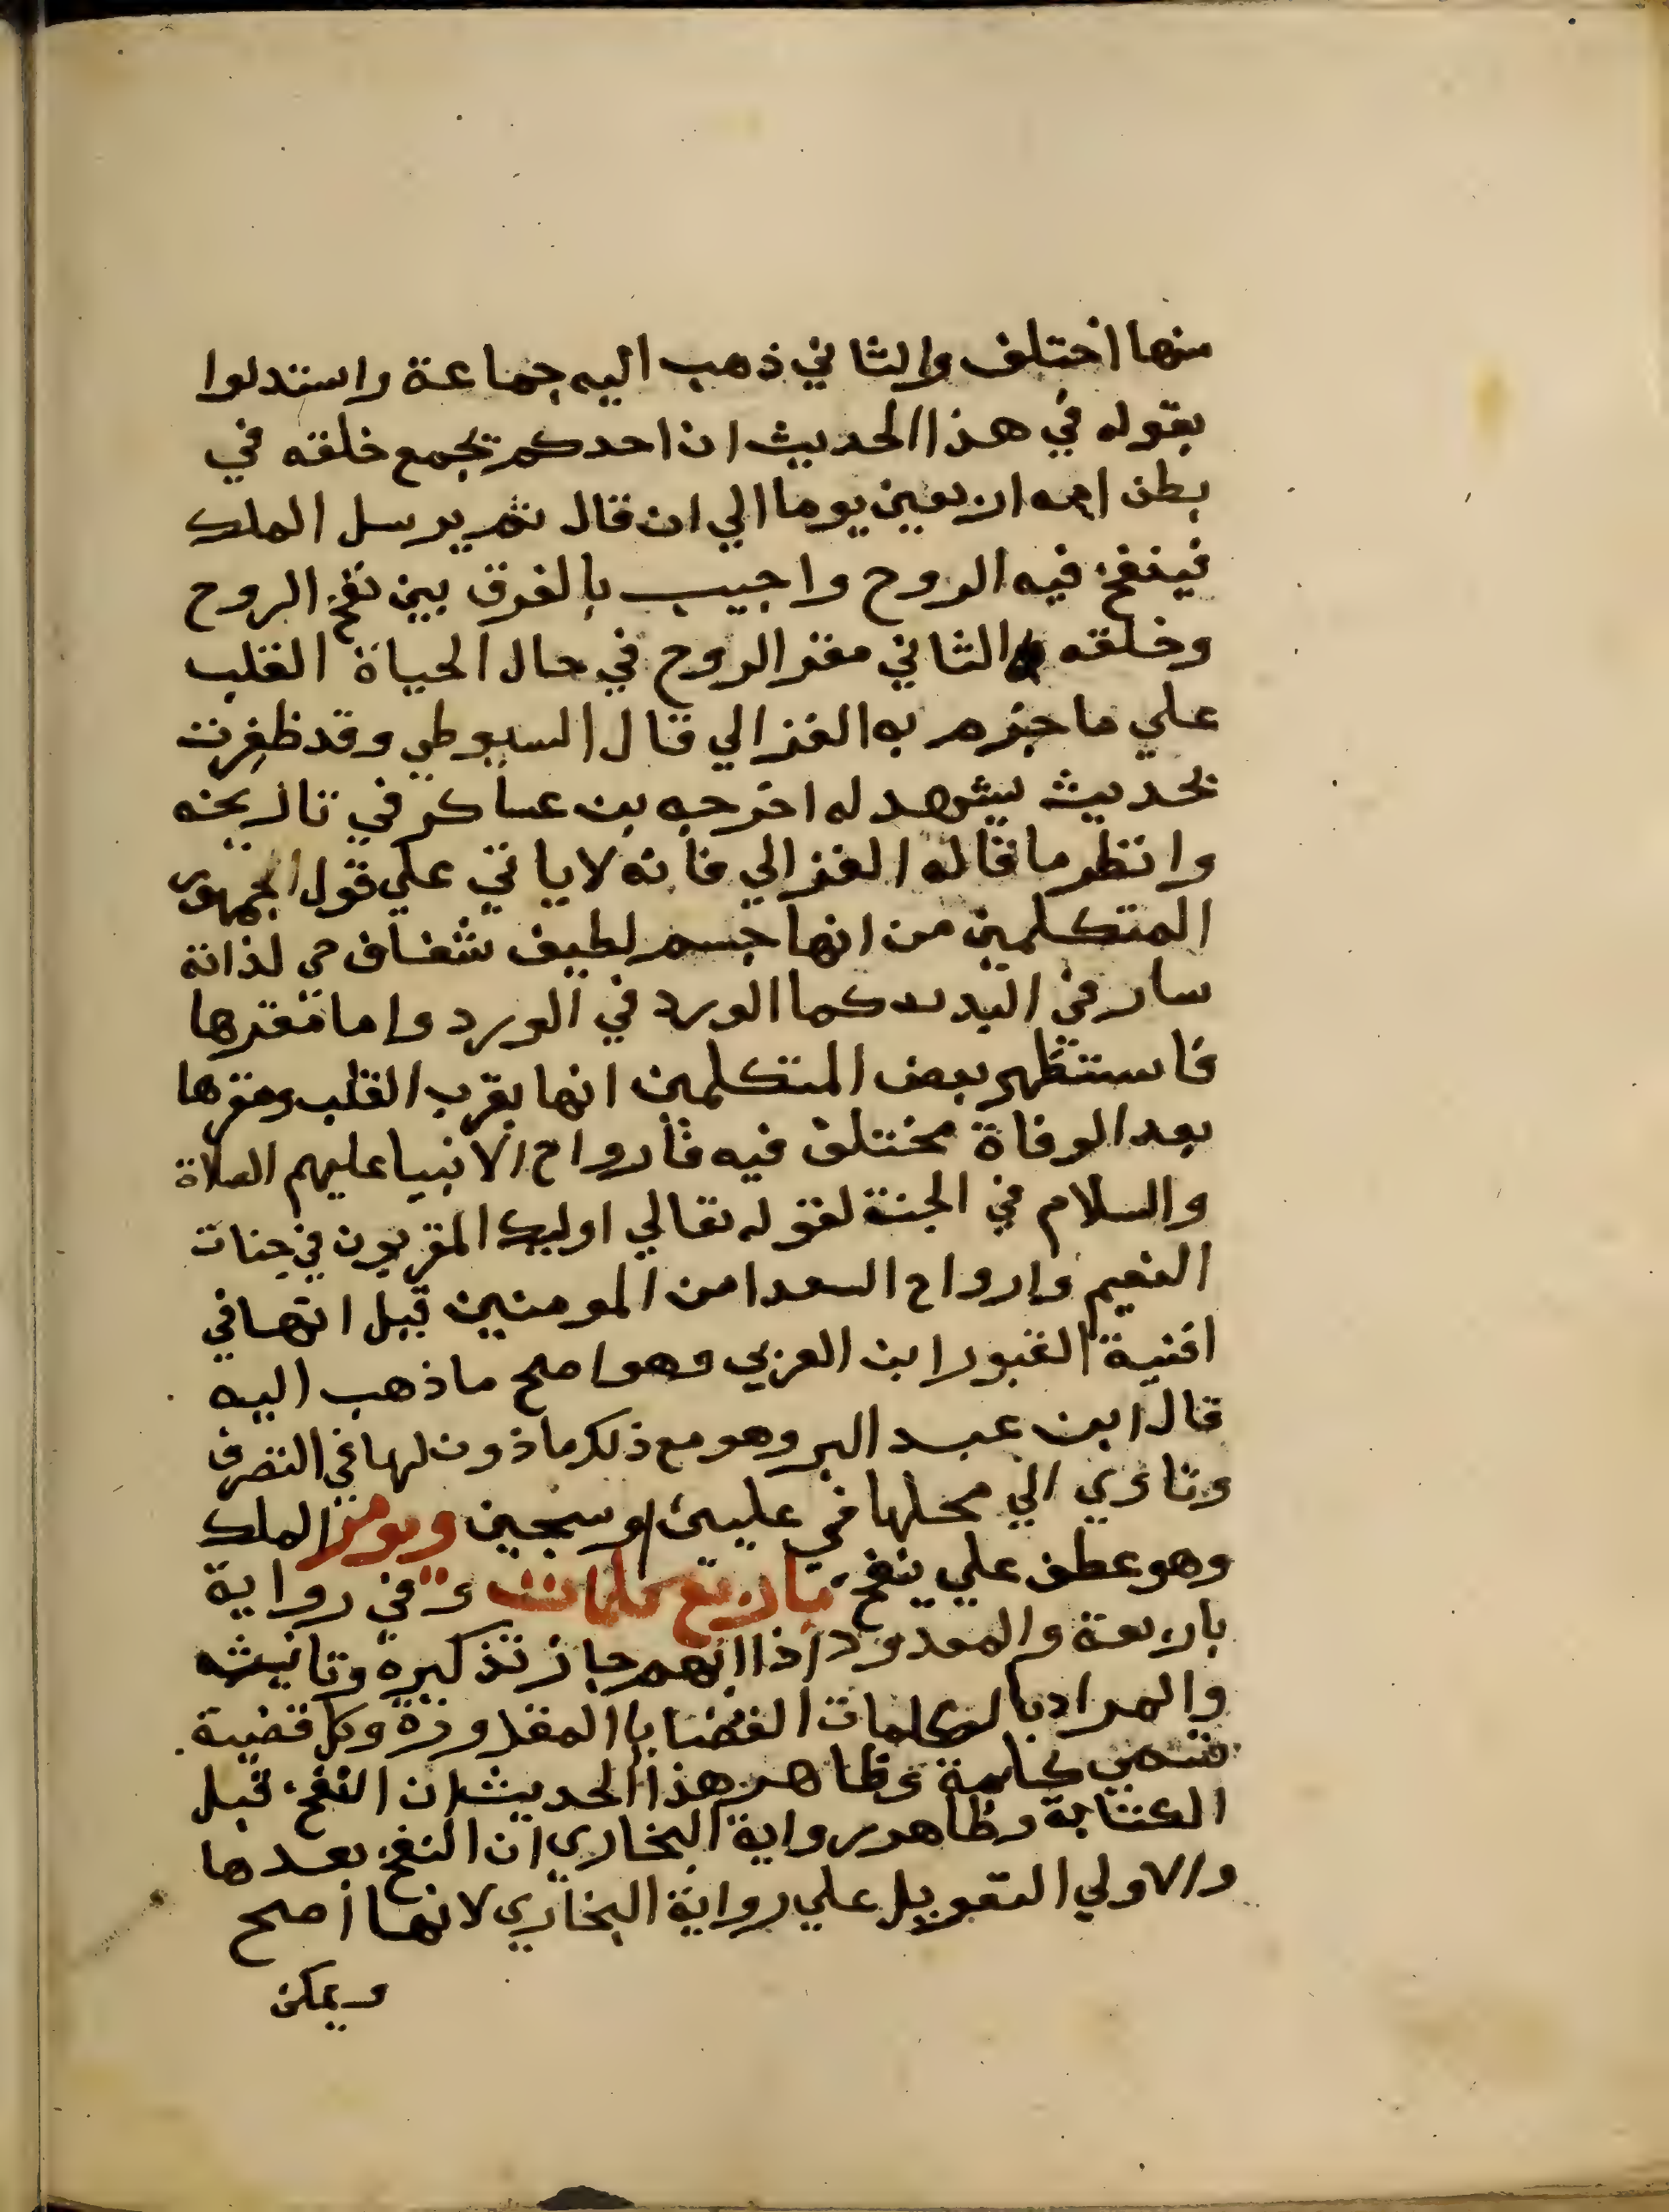 منها اختلف والثاني ذهب اليه جماعة واستدلوا
بقوله في هذا الحديث ان احدكم يجمع خلقه في
بطن امه اربعين يوما الي ان قال ثم يرسل الملك
فينفخ فيه الروح واجيب بالفرق بين نفخ الروح
وخلقه الثاني مقر الروح في حال الحياة القلب
علي ما جزم به الغزالي قال السيوطي وقد ظفرت
بحديث يشهد له اخرجه بن عساكر في تاريخه
وانظر ما قاله الغزالي فانه لا ياتي علي قول الجمهور
المتكلمين من انها جسم لطيف شفاف حي لذاته
سار في البدن كما الورد في الورد واما مقرها
فاستظهر بعض المتكلمين انها بقرب القلب ومقرها
بعد الوفاة مختلف فيه فارواح الانبيا عليهم الصلاة
والسلام في الجنة لقوله تعالي اوليك المقربون في جنات
النعيم وارواح السعدا من المومنين قيل انها في
افنية القبور ابن العربي وهو اصح ما ذهب اليه
قال ابن عبد البر وهو مع ذلك ماذون لها في التصرف
وتاوي الي محلها في عليين او سجين ويومر الملك
وهو عطف علي ينفخ باربع كلمات وفي رواية
باربعة والمعدود اذا ابهم جاز تذكيره وتانيثه
والمراد بالكلمات القضايا المقدورة وكل قضية
تسمي كلمة وظاهر هذا الحديث ان النفخ قبل
الكتابة وظاهر رواية البخاري ان النفخ بعدها
والاولي التعويل علي رواية البخاري لانها اصح
ويمكن